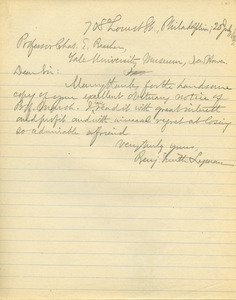 708 Locust St., Philadelphia, 20 July
Professor Chas. E. Beecher,
Yale University Museum, New Haven
Dear Sir:
Many thanks for the handsome
copy of your excellent obituary notice of
Prof. Marsh. I read it with great interest
and profit and with renewed regret at losing
so admirable a friend.
Very truly yours,
Benj. Smith Lyman